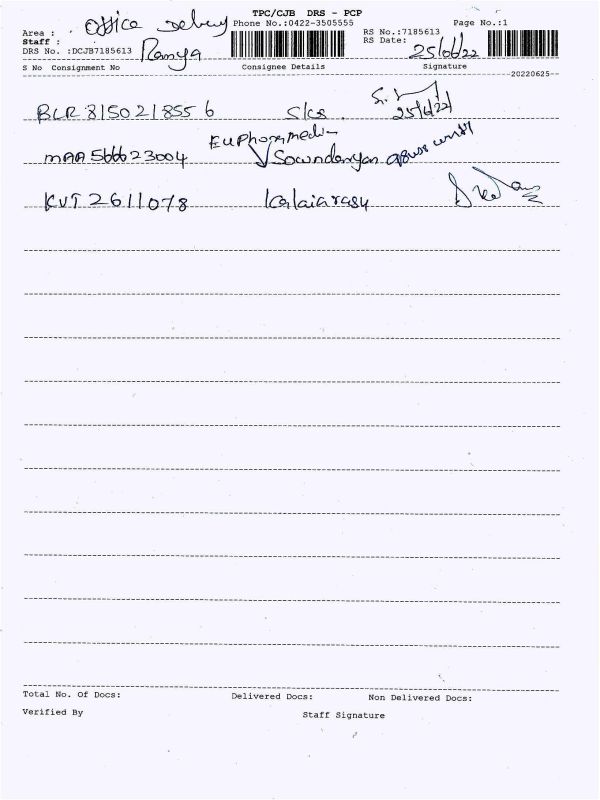 TPC/CJB DRS - PCP
Area : Office Phone No.:0422-3505555 RS No.:7185613 Page No.:1
Staff : Ramya RS Date: 25/06/22
DRS No. :DCJB7185613
S No Consignment No Consignee Details Signature
20220625
BLR 815021855 6 S/cs. 25/6/22
Euphoria media
MAA 566623004 Soundaryan
KVT 2611078 kalaiarasu
Total No. Of Docs: Delivered Docs: Non Delivered Docs:
Verified By Staff Signature